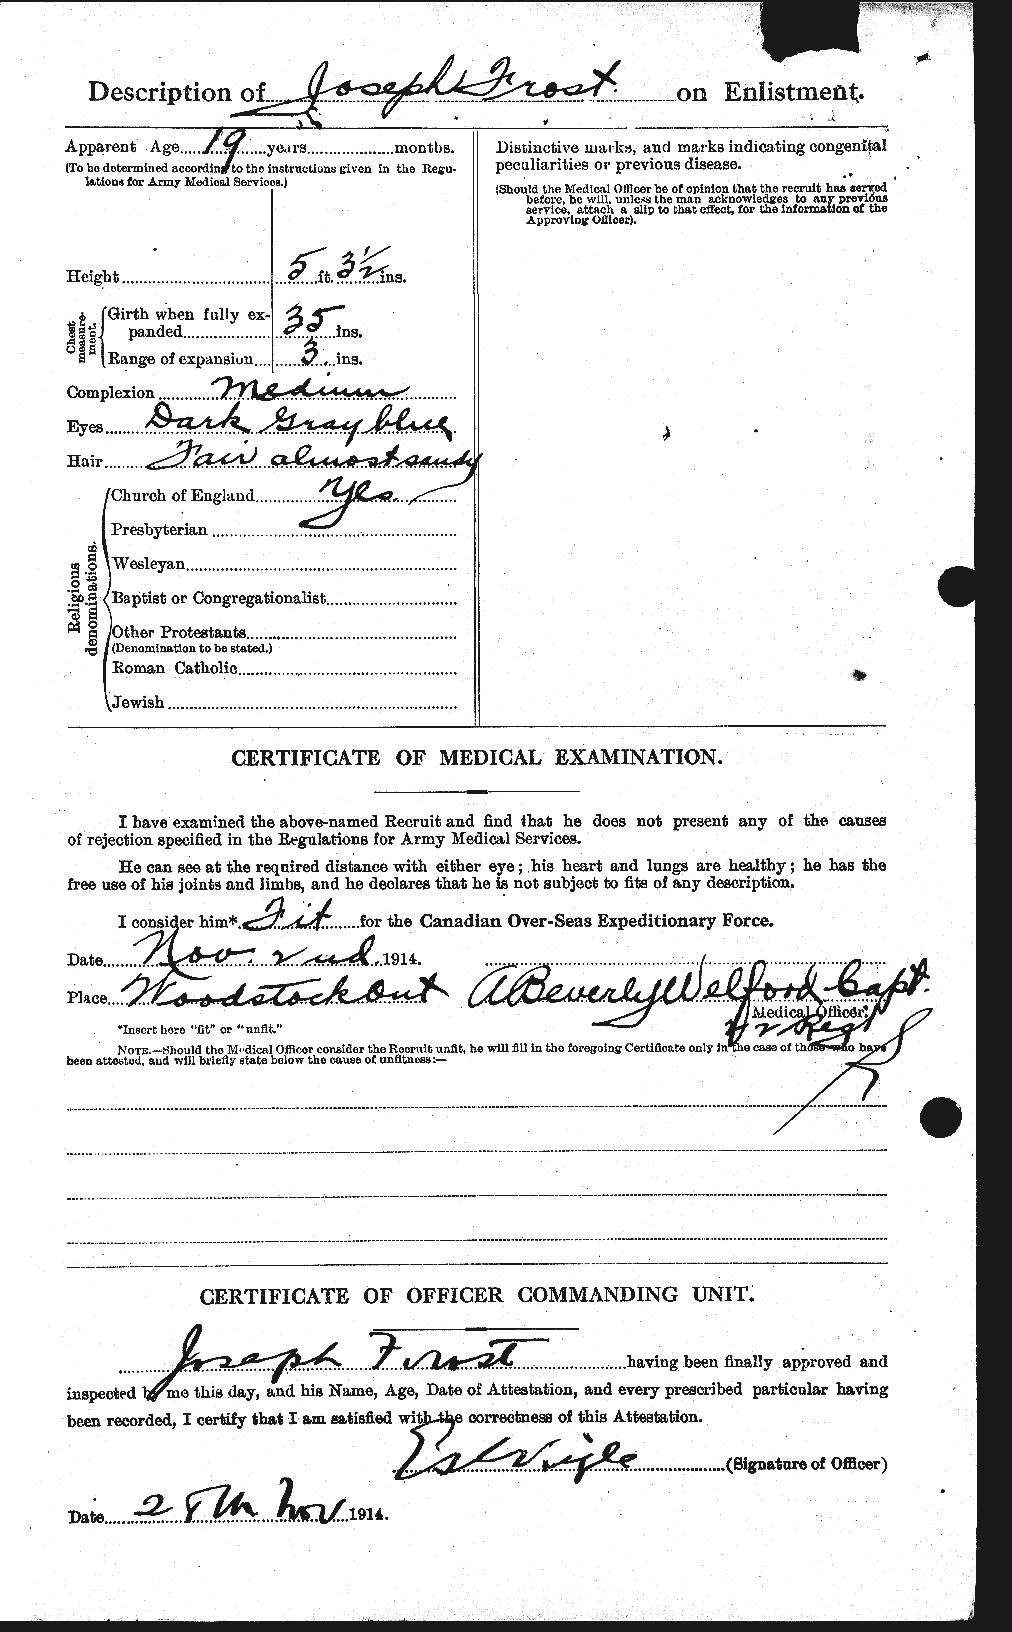 Description of Joseph Frost on Enlistment.
Apparent Age 19 years months.
(To be determined according to the instructions given in the Regu-
lations for Army Medical Services.)
Height 5 ft. 3½ ins.
Chest measure-ment.
Girth when fully ex-
panded 35 ins.
Range of expansion 3 ins.
Complexion Medium
Eyes Dark Gray blue
Hair Fair almost sandy
Religious denominations.
Church of England Yes.
Presbyterian
Wesleyan
Baptist or Congregationalist
Other Protestants
(Denomination to be stated.)
Roman Catholic
Jewish
Distinctive marks, and marks indicating congenital
peculiarities or previous disease.
(Should the Medical Officer be of opinion that the recruit has served
before, he will, unless the man acknowledges to any previous
service, attach a slip to that effect, for the information of the
Approving Officer).
CERTIFICATE OF MEDICAL EXAMINATION.
I have examined the above-named Recruit and find that he does not present any of the causes
of rejection specified in the Regulations for Army Medical Services.
He can see at the required distance with either eye; his heart and lungs are healthy; he has the
free use of his joints and limbs, and he declares that he is not subject to fits of any description.
I consider him* Fit for the Canadian Over-Seas Expeditionary Force.
Date Nov. 2nd 1914.
Place Woodstock Ont A Beverly Welford Capt.
Medical Officer.
Regt
*Insert here "fit" or "unfit."
NOTE.—Should the Medical Officer consider the Recruit unfit, he will fill in the foregoing Certificate only in the case of those who have
been attested, and will briefly state below the cause of unfitness:—
CERTIFICATE OF OFFICER COMMANDING UNIT.
Joseph Frost having been finally approved and
inspected by me this day, and his Name, Age, Date of Attestation, and every prescribed particular having
been recorded, I certify that I am satisfied with the correctness of this Attestation.
(Signature of Officer)
Date 28th Nov 1914.